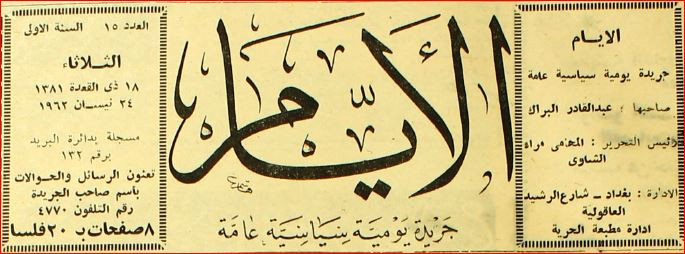 الايام
جريدة يومية سياسية عامة
صاحبها : عبدالقادر البراك
رئيس التحرير : المحامي
الشماوى
الادارة : بغداد ــ شارع الرشيد
العاقولية
ادارة مطبعة الحرية
الأيام
جريدة يومية سياسية عامة
العدد ١٥ السنة الاولى
الثلاثاء
١٨ ذى القعدة ١٣٨١
٢٤ نيسـان ١٩٦٢
مسجلة بدائرة البريد
برقم ١٣٢
تعنون الرسائل والحوالات
باسم صاحب الجريدة
رقم التلفون ٤٧٧٠
٨ صفحات بـ ٢٠ فلسا